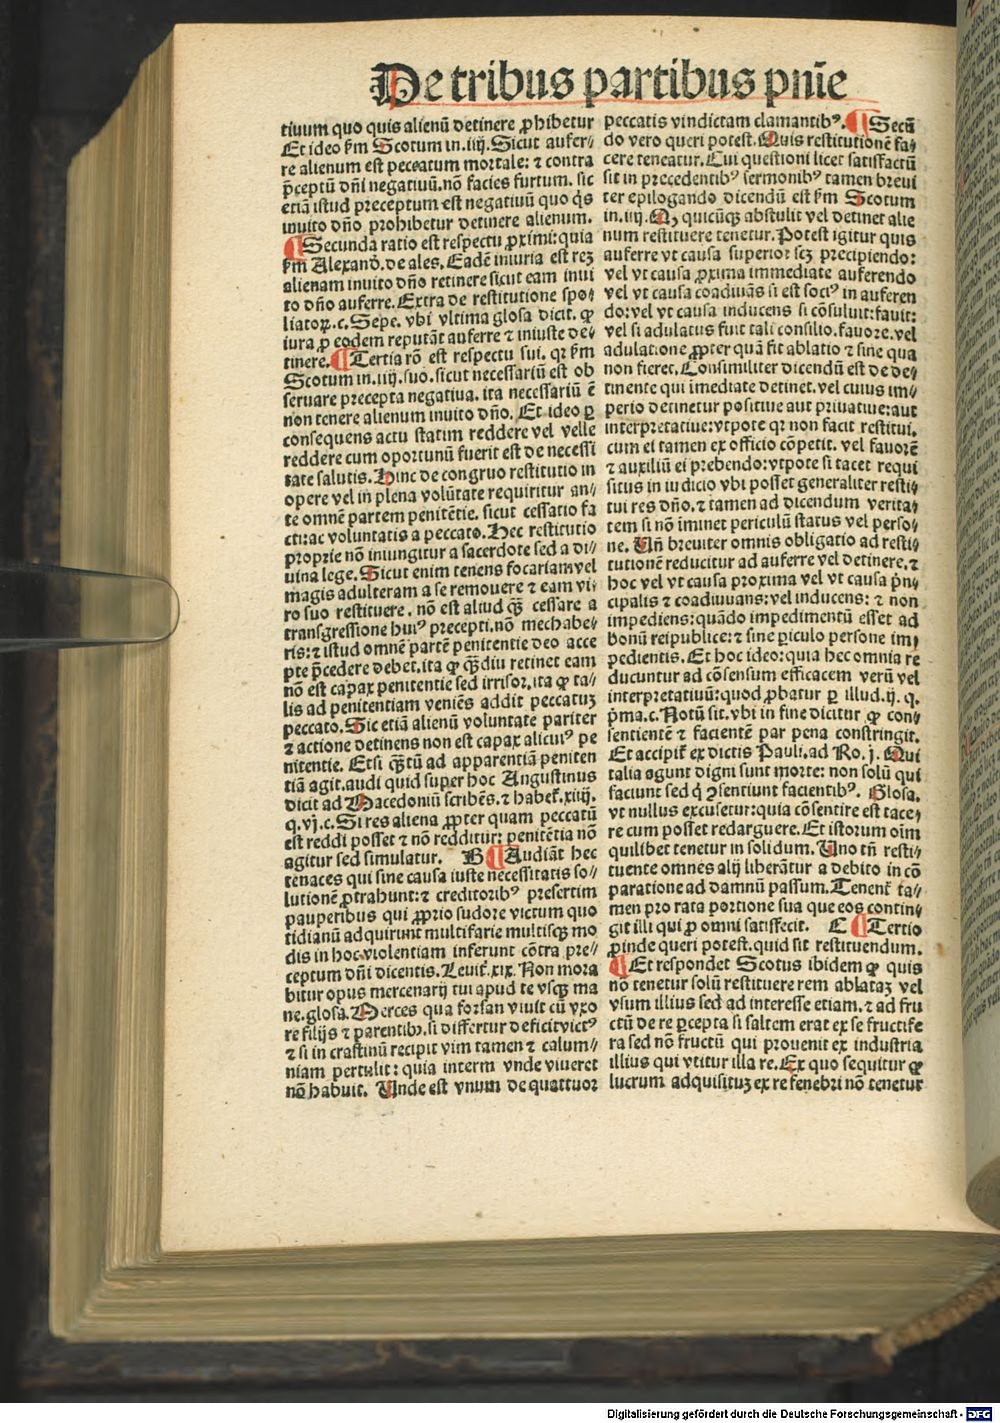 De tribus partibus pnīe
tiuum quo quis alienū detinere ꝓhibetur
Et ideo ẜm Scotum in.iiij. Sicut aufer⸗
re alienum est peccatum mortale: ⁊ contra
p̄ceptū dn̄i negatiuū.nō facies furtum. sic
etiā istud preceptum est negatiuū quo q̇s
inuito dn̄o prohibetur detinere alienum.
¶ Secunda ratio est respectu ꝓximi: quia
ẜm Alexand̕. de ales. Eadē iniuria est reꝫ
alienam inuito dn̄o retinere sicut eam inui
to dn̄o auferre. Extra de restitutione spo⸗
liatoꝝ.c. Sepe. vbi vltima glosa dicit. ꝙ
iura ꝓ eodem reputāt auferre ⁊ iniuste de⸗
tinere. ¶ Tertia rō est respectu sui. qꝛ ẜm
Scotum in.iiij. suo. sicut necessariū est ob
seruare precepta negatiua. ita necessariū ē
non tenere alienum inuito dn̄o. Et ideo ꝑ
consequens actu statim reddere vel velle
reddere cum oportunū fuerit est de necessi
tate salutis. Hinc de congruo restitutio in
opere vel in plena volūtate requiritur an⸗
te omnē partem penitētie. sicut cessatio fa
cti: ac voluntatis a peccato. Hec restitutio
proprie nō iniungitur a sacerdote sed a di⸗
uina lege. Sicut enim tenens focariam vel
magis adulteram a se remouere ⁊ eam vi⸗
ro suo restituere. nō est aliud qꝫ̄ cessare a
transgressione huiꝰ precepti.nō mechabe⸗
ris: ⁊ istud omnē partē penitentie deo acce
pte p̄cedere debet. ita ꝙ qꝫ̄diu retinet eam
nō est capax penitentie sed irrisor. ita ꝙ ta⸗
lis ad penitentiam veniēs addit peccatuꝫ
peccato. Sic etiā alienū voluntate pariter
⁊ actione detinens non est capax alicuiꝰ pe
nitentie. Etsi qꝫ̄tū ad apparentiā peniten
tiā agit. audi quid super hoc Augustinus
dicit ad Macedoniū scribēs. ⁊ habet̄.xiiij.
q.vj.c. Si res aliena ꝓpter quam peccatū
est reddi posset ⁊ nō redditur: penitētia nō
agitur sed simulatur. B ¶ Audiāt hec
tenaces qui sine causa iuste necessitatis so⸗
lutionē ꝓtrahunt: ⁊ creditoribꝰ presertim
pauperibus qui ꝓprio sudore victum quo
tidianū adquirunt multifarie multisqꝫ mo
dis in hoc violentiam inferunt cōtra pre⸗
ceptum dn̄i dicentis. Leuit̄.xix. Non mora
bitur opus mercenarij tui apud te vsqꝫ ma
ne. glosa. Merces qua forsan viuit cū vxo
re filijs ⁊ parentibꝰ. si differtur deficit victꝰ
⁊ si in crastinū recipit vim tamen ⁊ calum⸗
niam pertulit: quia interm vnde viueret
nō habuit. Unde est vnum de quattuor
peccatis vindictam clamantibꝰ. ¶ Secū
do vero queri potest. Quis restitutionē fa⸗
cere teneatur. Cui questioni licet satisfactū
sit in precedentibꝰ sermonibꝰ tamen breui
ter epilogando dicendū est ẜm Scotum
in.iiij. Qꝫ quicūqꝫ abstulit vel detinet alie
num restituere tenetur. Potest igitur quis
auferre vt causa superior scꝫ precipiendo:
vel vt causa ꝓxima immediate auferendo
vel vt causa coadiuās si est sociꝰ in auferen
do: vel vt causa inducens si cōsuluit: fauit:
vel si adulatus fuit tali consilio. fauore. vel
adulatione ꝓpter quā fit ablatio ⁊ sine qua
non fieret. Consimiliter dicendū est de de⸗
tinente qui imediate detinet. vel cuius im⸗
perio detinetur positiue aut priuatiue: aut
interpretatiue: vtpote qꝛ non facit restitui.
cum ei tamen ex officio cōpetit. vel fauorē
⁊ auxiliū ei prebendo: vtpote si tacet requi
situs in iudicio vbi posset generaliter resti⸗
tui res dn̄o. ⁊ tamen ad dicendum verita⸗
tem si nō iminet periculū status vel perso⸗
ne. Un̄ breuiter omnis obligatio ad resti⸗
tutionē reducitur ad auferre vel detinere. ⁊
hoc vel vt causa proxima vel vt causa p̄n⸗
cipalis ⁊ coadiuuans: vel inducens: ⁊ non
impediens: quādo impedimentū esset ad
bonū reipublice: ⁊ sine ꝑiculo persone im⸗
pedientis. Et hoc ideo: quia hec omnia re
ducuntur ad cōsensum efficacem verū vel
interpretatiuū: quod ꝓbatur ꝑ illud.ij. q.
p̄ma.c. Notū sit. vbi in fine dicitur ꝙ con⸗
sentientē ⁊ facientē par pena constringit.
Et accipit̄ ex dictis Pauli. ad Ro.j. Qui
talia agunt digni sunt morte: non solū qui
faciunt sed q̇ ꝯsentiunt facientibꝰ. Glosa.
vt nullus excusetur: quia cōsentire est tace⸗
re cum posset redarguere. Et istorum oīm
quilibet tenetur in solidum. Uno tn̄ resti⸗
tuente omnes alij liberātur a debito in cō
paratione ad damnū passum. Tenent̄ ta⸗
men pro rata portione sua que eos contin⸗
git illi qui ꝓ omni satisfecit. C ¶ Tertio
ꝓinde queri potest. quid sit restituendum.
¶ Et respondet Scotus ibidem ꝙ quis
nō tenetur solū restituere rem ablataꝫ vel
vsum illius sed ad interesse etiam. ⁊ ad fru
ctū de re ꝑcepta si saltem erat ex se fructife
ra sed nō fructū qui prouenit ex industria
illius qui vtitur illa re. Ex quo sequitur ꝙ
lucrum adquisituꝫ ex re fenebri nō tenetur
Digitalisierung gefördert durch die Deutsche Forschungsgemeinschaft - DFG